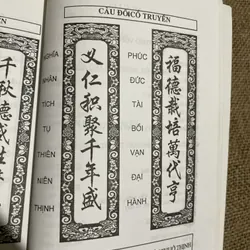 CÂU ĐỐICỔ TRUYỀN
千秋德
NGHĨA
NHÂN
TÍCH
TỤ
THIÊN
NIÊN
THỊNH
义仁积聚千年盛
PHÚC
ĐỨC
TÀI
BỒI
VẠN
ĐẠI
HÀNH
福德栽培萬代亨